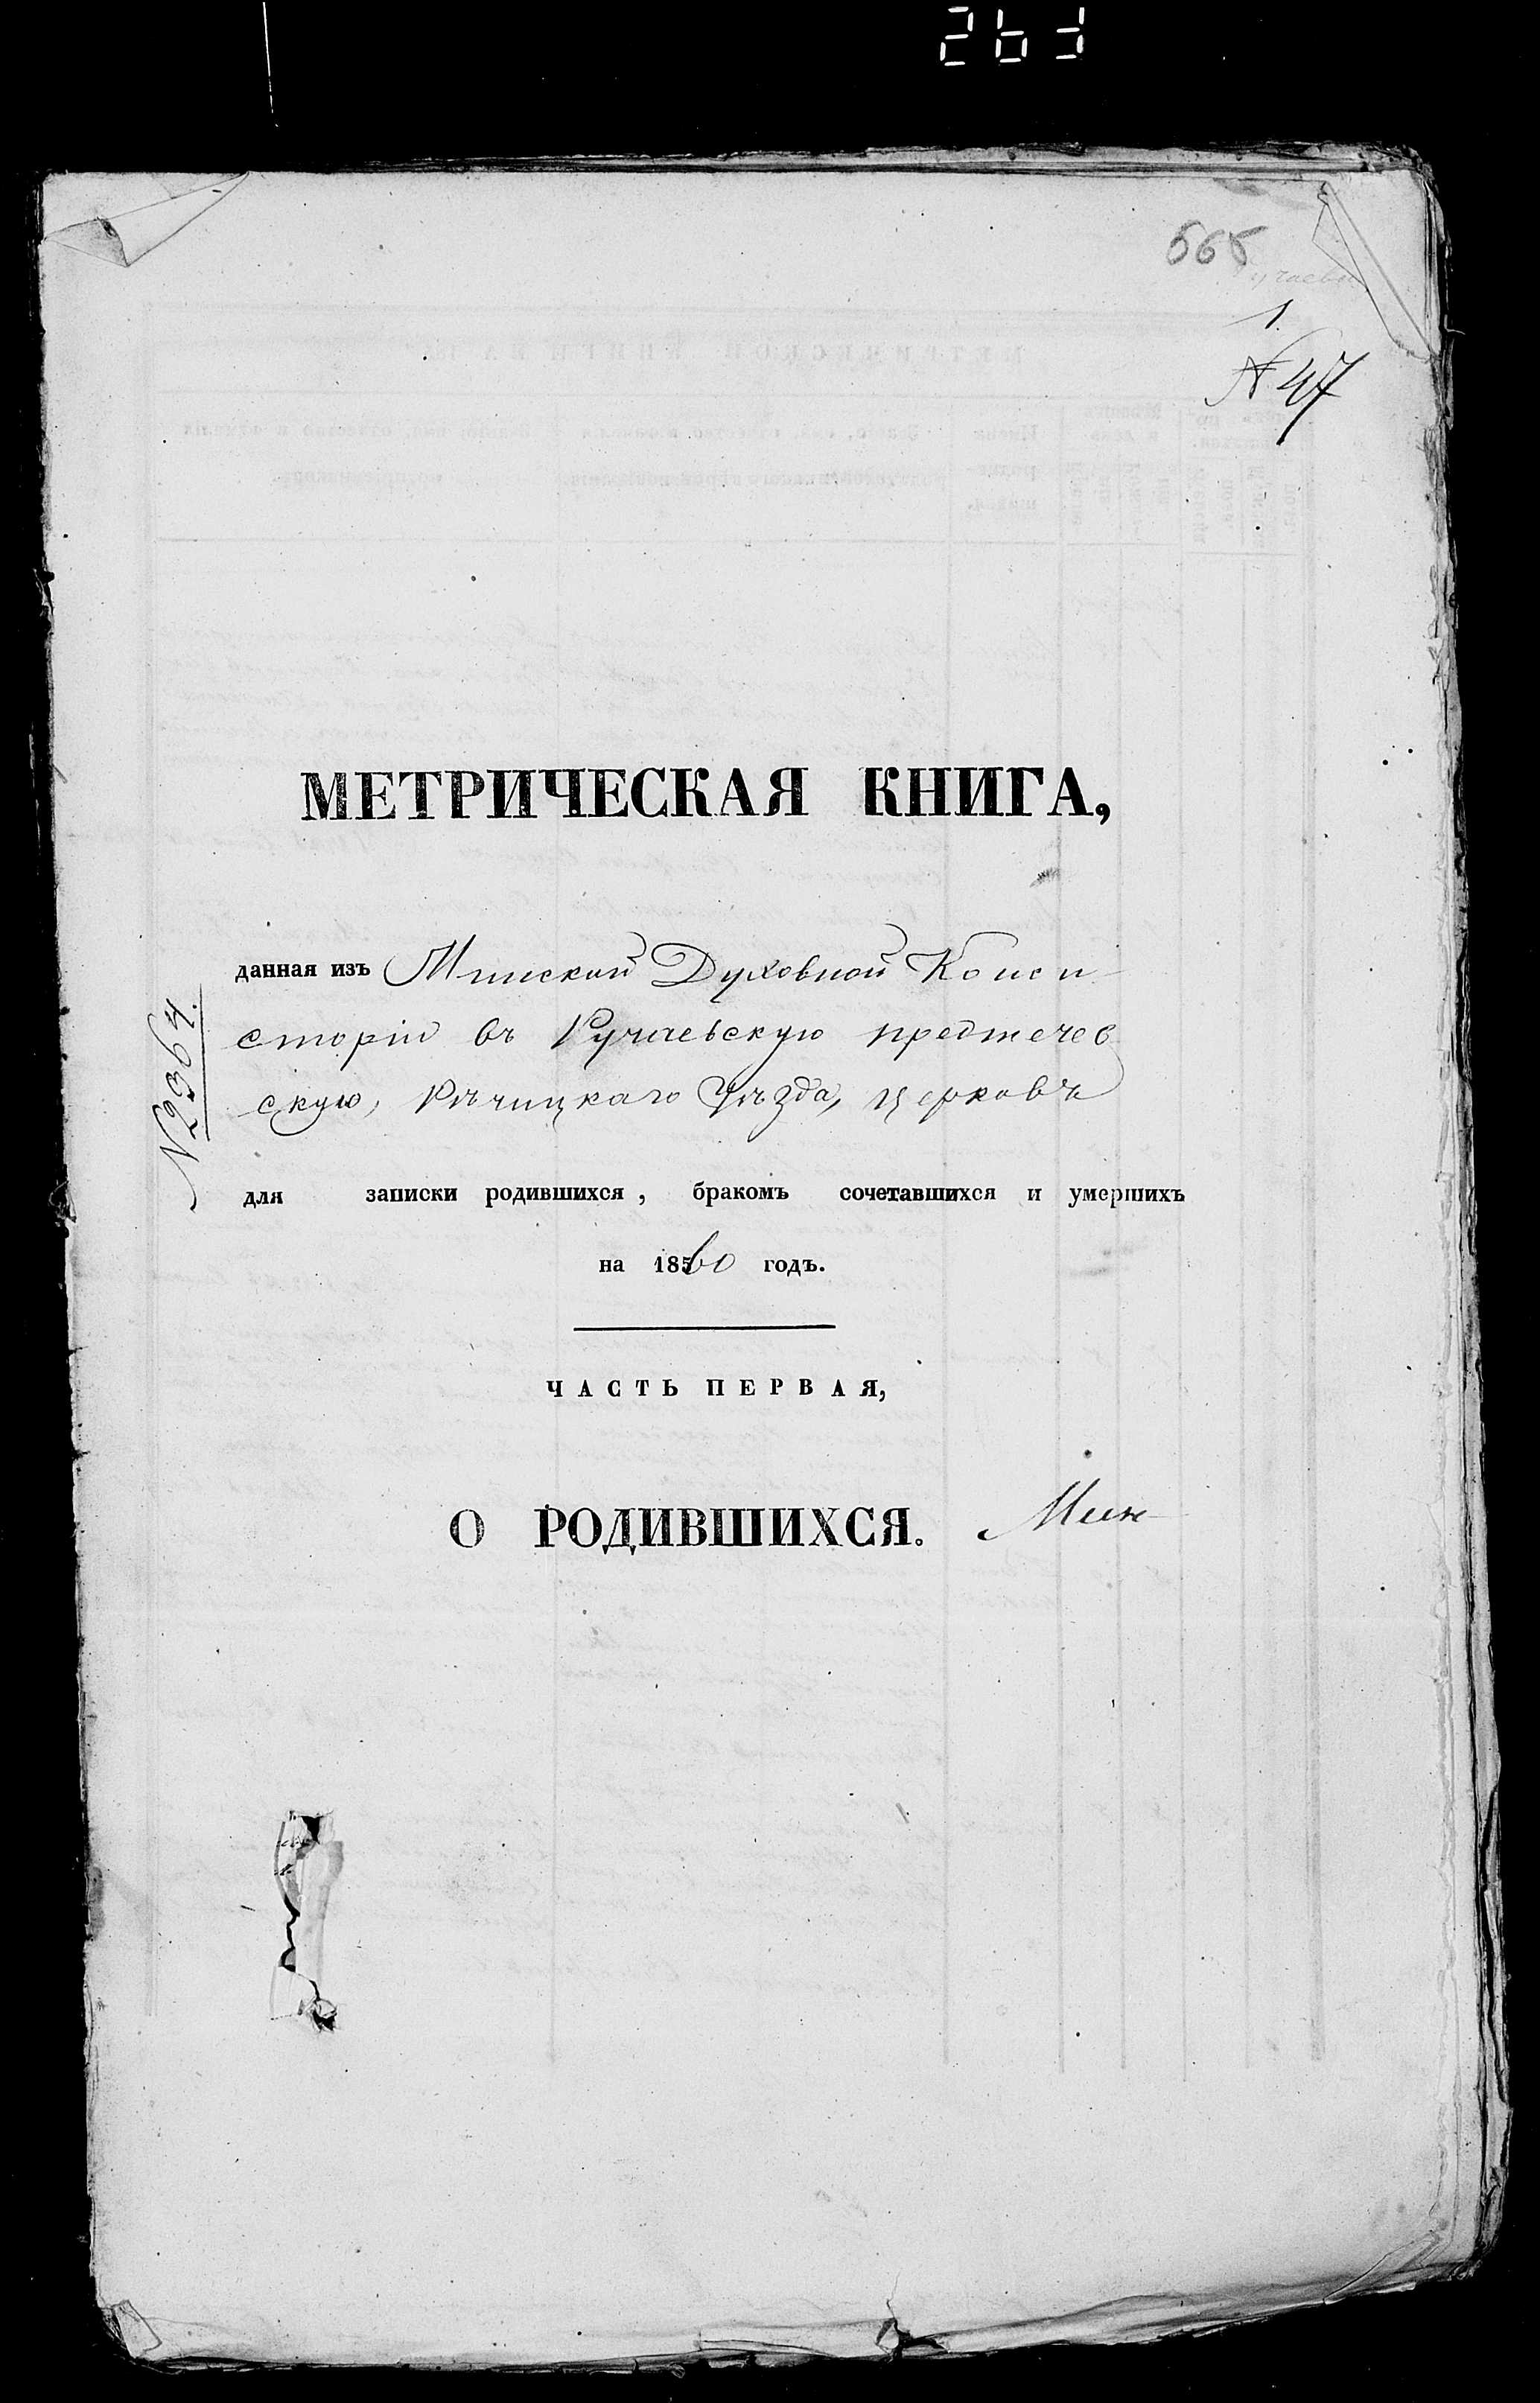 565
1.
N 47
МЕТРИЧЕСКАЯ КНИГА,
данная изъ Минской Духовной Конси
сторіи въ Ручаевскую предтечев
скую, Рѣчицкаго Уѣзда, церковь
N 2364.
для записки родившихся, бракомъ сочетавшихся и умершихъ
на 18560 годъ.
ЧАСТЬ ПЕРВАЯ,
О РОДИВШИХСЯ. Мин